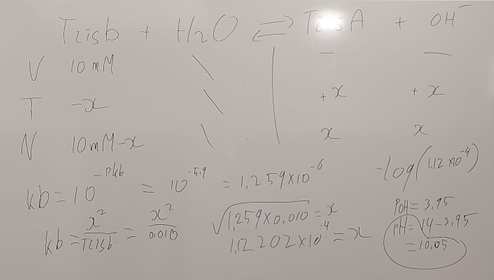 Trisb + H2O ⇌ TrisA + OH⁻
V 10 mM \ | — —
T -x \ | +x +x
N 10mM-x \ | x x
kb = 10^-pkb = 10^-5.9 = 1.259×10^-6
kb = x²/Trisb = x²/0.010
√1.259×0.010 = x
1.12202×10^-4 = x
-log(1.12×10^-4)
pOH = 3.95
pH = 14-3.95
= 10.05